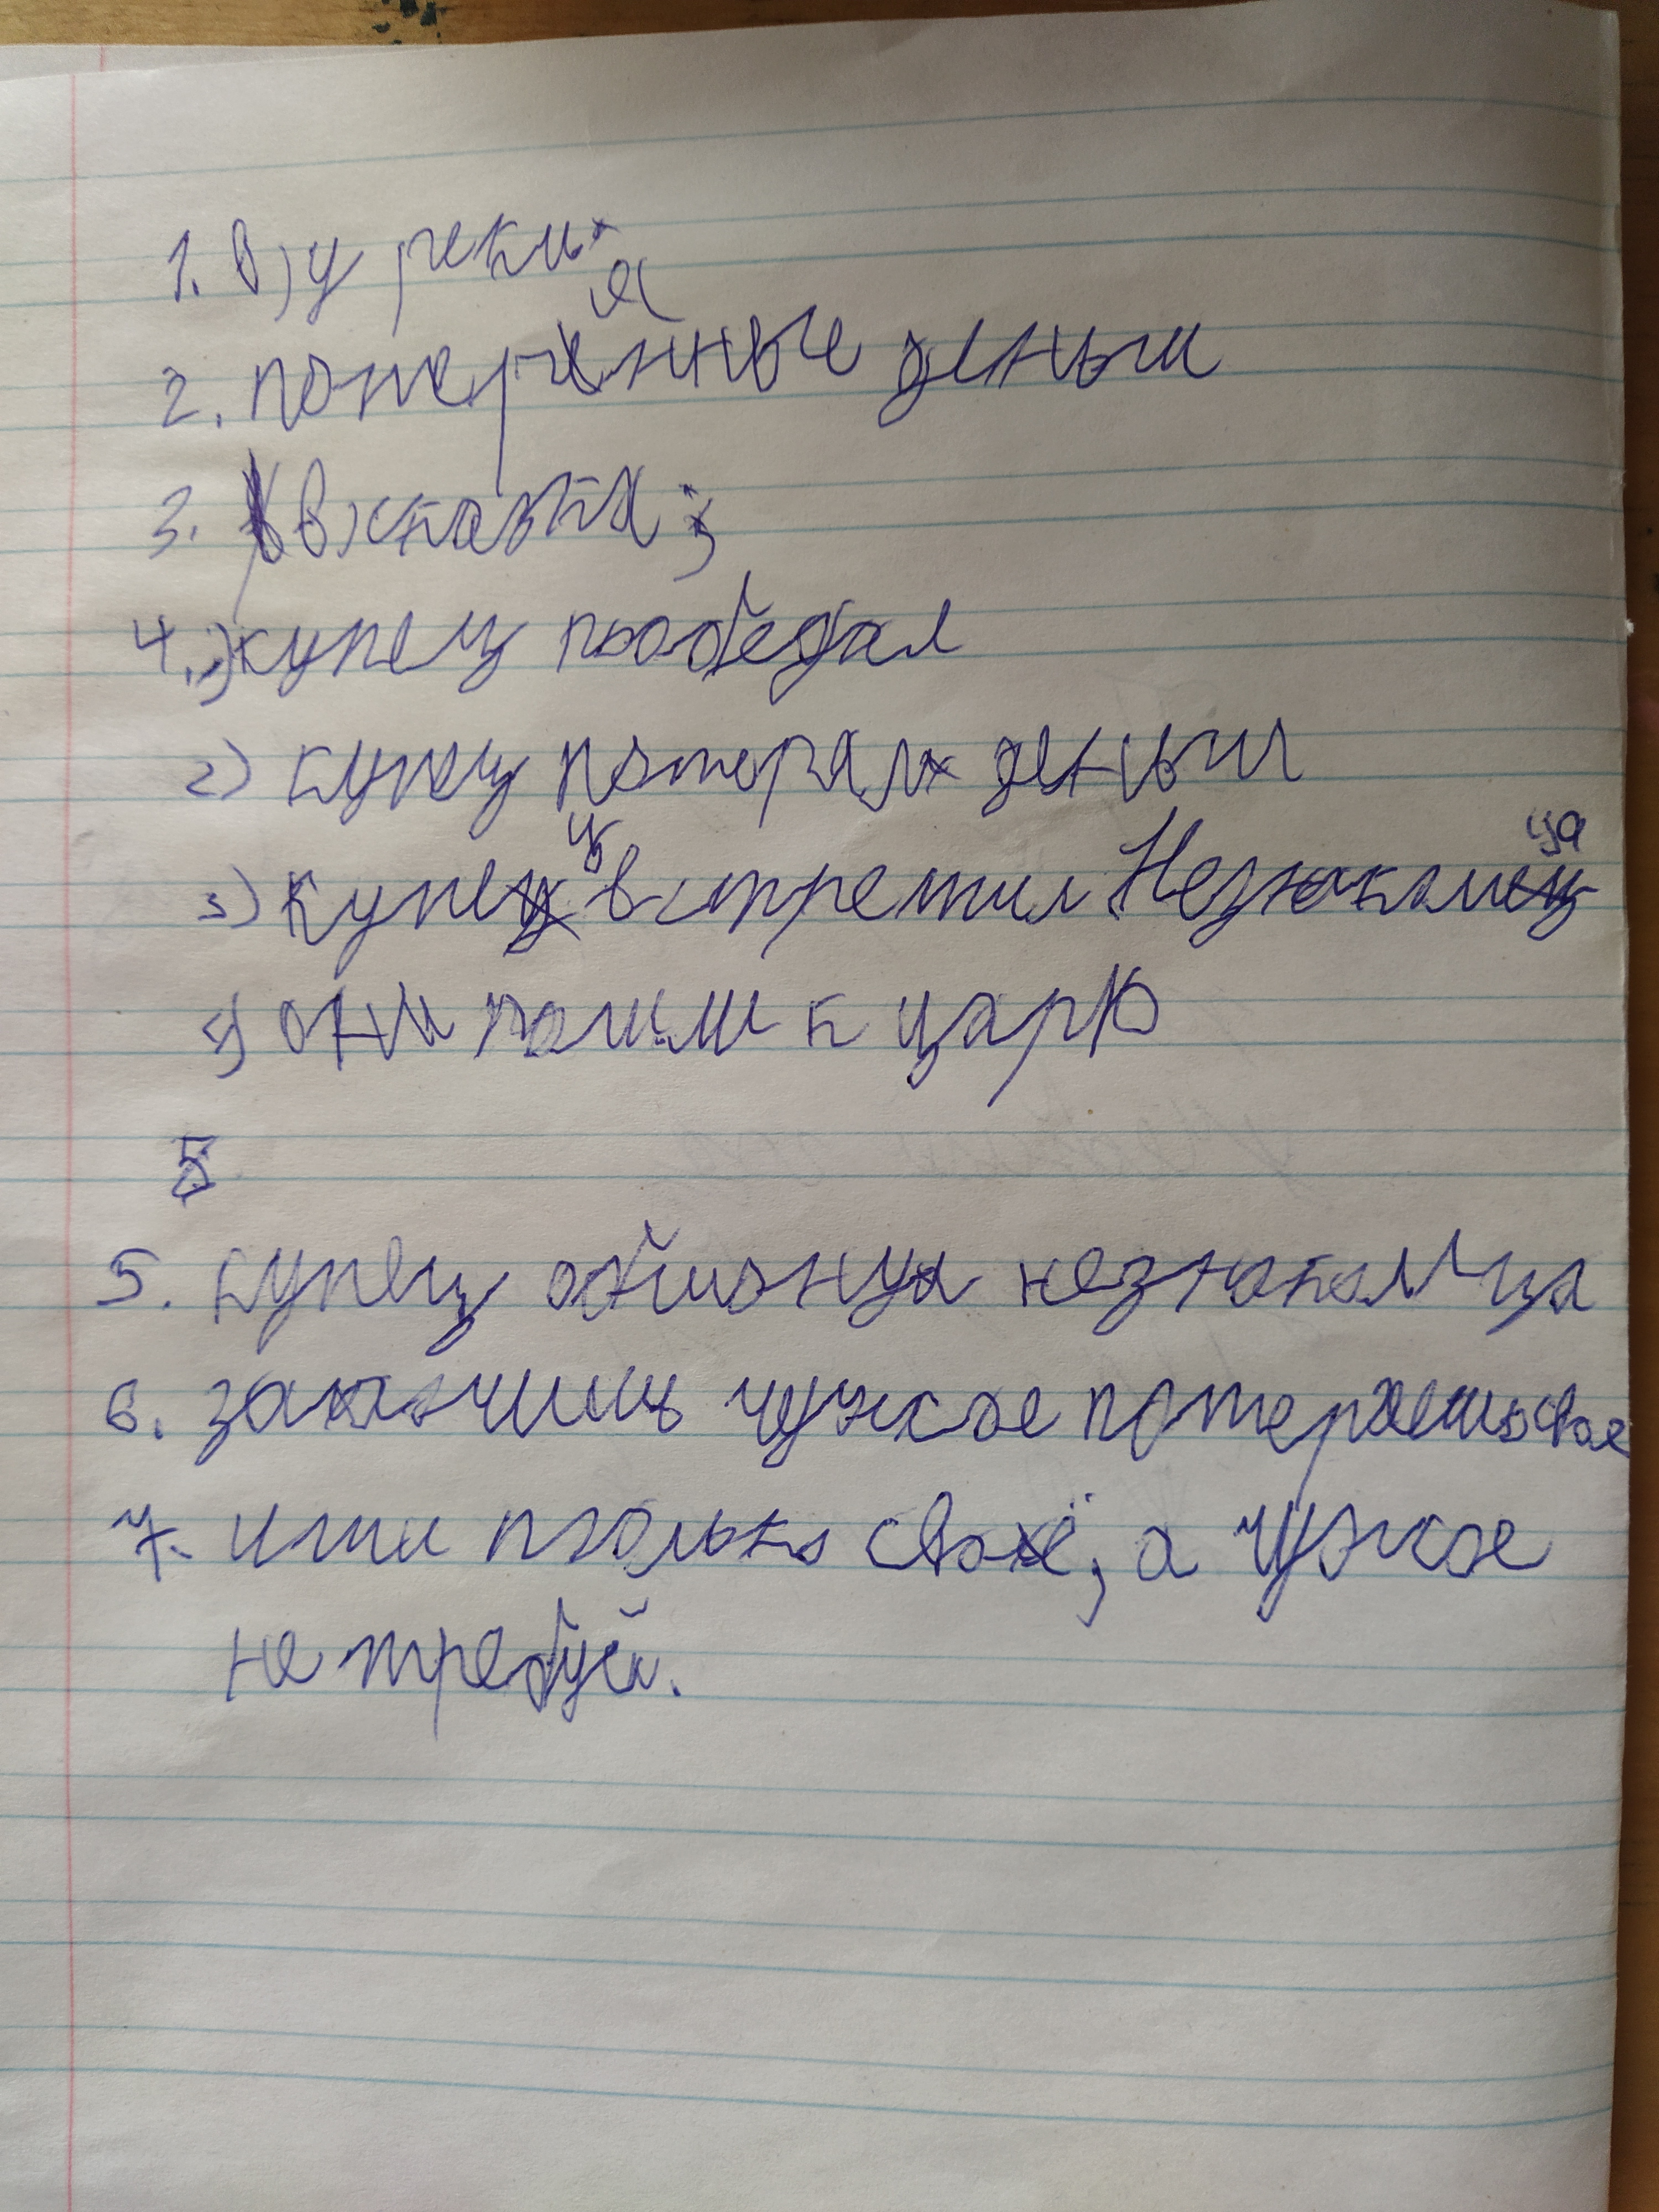 1. в) у реки
2. потерянные деньги
3. в) сказка;
4. 1) купец пообедал
2) купец потерял деньги
3) Купец встретил Незнакомца
4) они пошли к царю
5
5. купец обманул незнакомца
6. захочишь чужое потеряешь свое
7. ищи только своё, а чужое
не требуй.